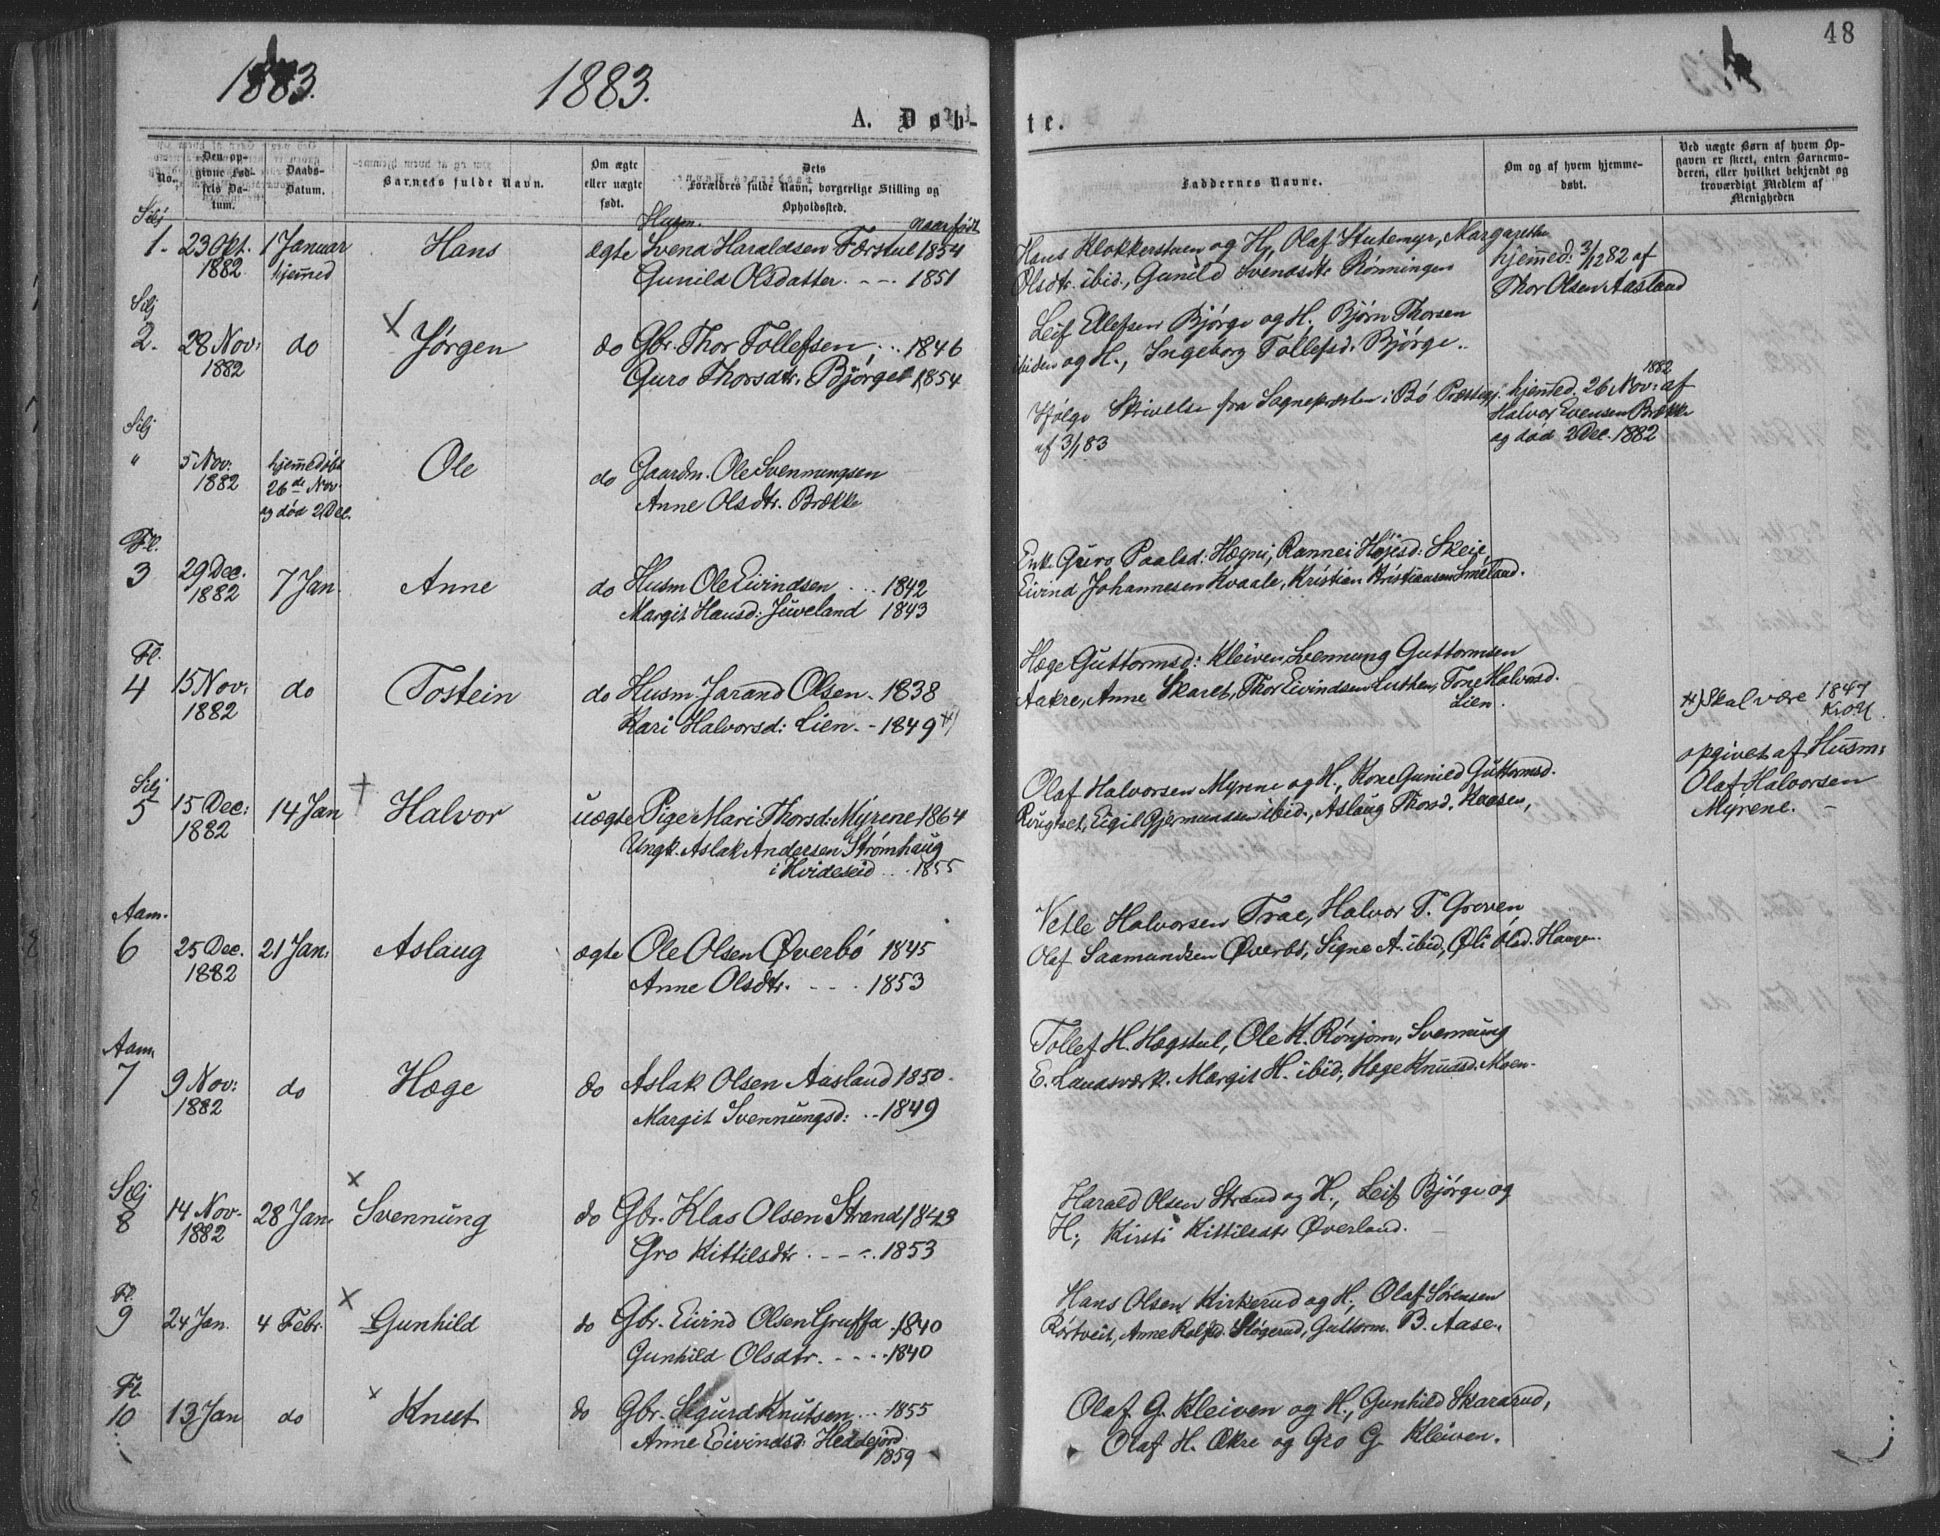 48
1883. 1883.
A. Døb-
te.
No.
Den op-
givne Fød-
sels Da-
tum.
Daabs-
Datum.
Barnets fulde Navn.
Om ægte
eller uægte
født.
Dets
Forældres fulde Navn, borgerlige Stilling og
Opholdssted.
Faddernes Navne.
Om og af hvem hjemme-
døbt.
Ved uægte Børn af hvem Op-
gaven er skeet, enten Barnemo-
deren, eller hvilket bekjendt og
troværdigt Medlem af
Menigheden
Silj Husm. naar født
1. 23 Okt. 1 Januar Hans ægte Svend Haraldsen Færstul 1854
1882 hjemmed Gunild Olsdatter. - - 1851
Hans Klokkerstuen og H., Olaf Stutemyr, Margarethe
Olsdtr. ibid., Gunild Svendsdtr Rønningen
hjemmed: 3/12 82 af
Thor Olsen Aasland
Silj
2. 28 Nov: do X Jørgen do Gbr. Thor Tollefsen, .. 1846
1882 Guro Thorsdtr. Bjørge 1854
Leif Ellefsen Bjørge og H. Bjørn Thorsen
ibiden og H., Ingeborg Tollefsd. Bjørge.
Silj
" 5 Nov: hjemmedøbt Ole do Gaardm. Ole Svennungsen
1882 26de Nov. Anne Olsdtr. Brække
og død 2 Dec.
Ifølge Skrivelse fra Sognepresten i Bø Præstegj.
af 3/1 83
1882
hjemmed. 26 Nov: af
Halvor Evensen Brække
og død 2 Dec. 1882
Fl.
3 29 Dec. 7 Jan. Anne do Husm Ole Eivindsen . . . 1842
1882 Margit Hansd: Juveland 1843
Enk. Guro Paalsd: Hægni, Rannei Høljesd: Skeie,
Eivind Johannesen Kvaale, Kristian Kristiansen Smeland.
Fl.
4 15 Nov. do Tostein do Husm. Jarand Olsen. 1838
1882 Kari Halvorsd: Lien. - 1849 *)
Hæge Guttormsd: Kleiven, Svennung Guttormsen
Aakre, Anne Skaret, Thor Eivindsen Luthen, Tone Halvorsd.
Lien.
*) Skal være 1847
K.O.H.
Silj
5 15 Dec: 14 Jan † Halvor uægte Pige Mari Thorsd: Myrene 1864
1882 Ungk. Aslak Andersen Strømhaug
i Hvideseid . . . 1855
Olaf Halvorsen Myrene og H., Kone Gunild Guttormsd.
Rugtvet, Eigil Gjermundsen ibid., Aslaug Thorsd. Kaasen,
opgivet af Husm:
Olaf Halvorsen
Myrene. -
Aam.
6 25 Dec. 21 Jan: Aslaug ægte Ole Olsen Øverbø 1845
1882 Anne Olsdtr. - - . 1853
Vetle Halvorsen Trae, Halvor T. Groven
Olaf Saamundsen Øverbø, Signe A. ibid, Øli Olsd. Haugen.
Aam.
7 9 Nov: do Hæge do Aslak Olsen Aasland 1850.
1882 Margit Svennungsd: .. 1849
Tollef H. Hægstul, Ole K. Rønjom, Svennung
E. Landsværk. Margit H. ibid, Hæge Knudsd. Moen.
Silj
8 14 Nov. 28 Jan. x Svennung do Gbr. Klas Olsen Strand 1843
1882 Gro Kittilsdtr . - - . 1853
Harald Olsen Strand og H., Leif Bjørge og
H., Kirsti Kittilsdtr Øverland.
Fl.
9 24 Jan. 4 Febr. X Gunhild do Gbr. Eivind Olsen Gruffa 1840
Gunhild Olsdtr. - - - . 1840
Hans Olsen Kirkerud og H., Olaf Sørensen
Rørtveit, Anne Rolfsd. Støgerud, Guttorm. B. Aase.
Fl.
10 13 Jan do x Knut do Gbr. Sigurd Knutsen . . 1855
Anne Eivindsd: Heddejord
1859
Olaf G. Kleiven og H., Gunhild Skararud,
Olaf H. Økre og Gro G. Kleiven.